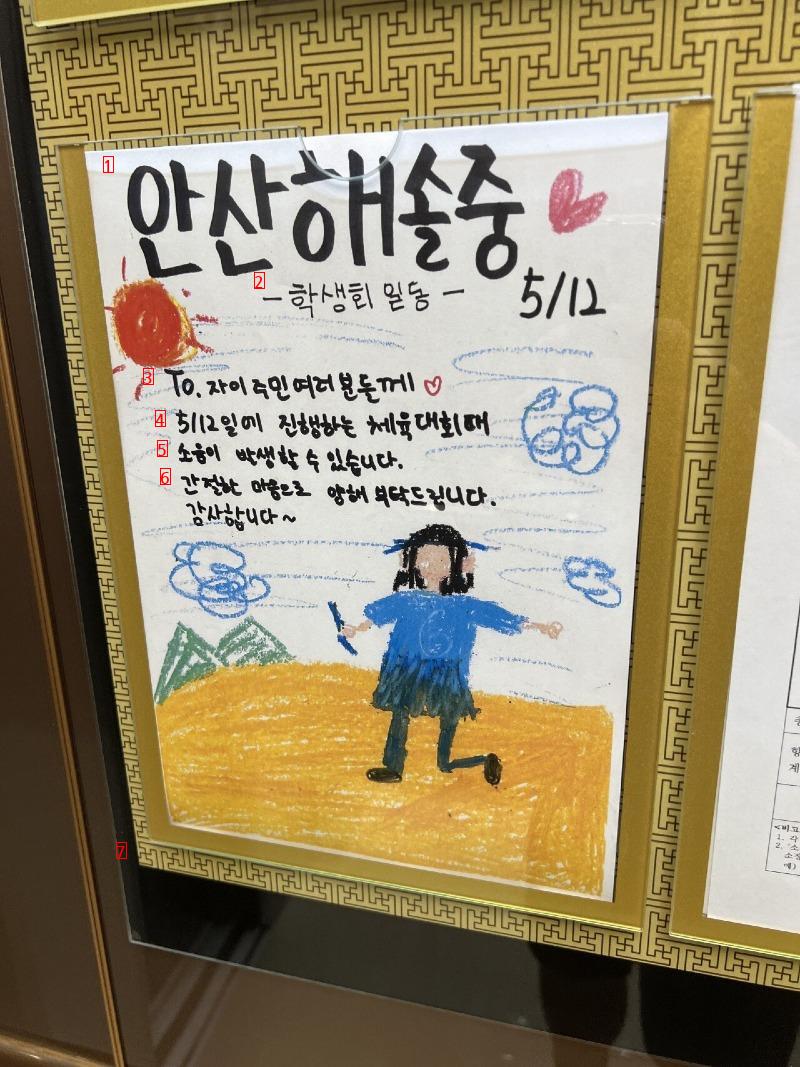 안산해솔중
5/12
- 학생회 일동 -
To. 자이 주민 여러분들께 ♡
5/12일에 진행하는 체육대회 때
소음이 발생할 수 있습니다.
간절한 마음으로 양해 부탁드립니다.
감사합니다~
<비고
1. 각
2. "소
소장
예)